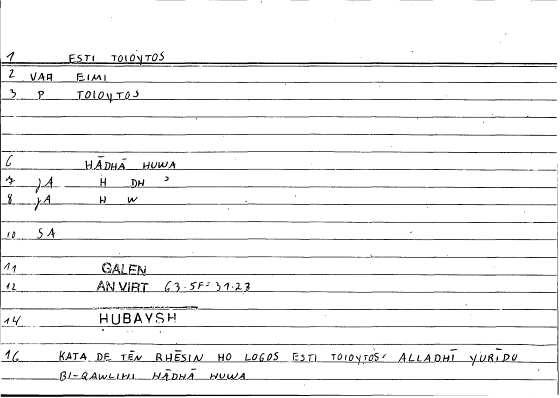 1 ESTI TOIOYTOS
2 VAR EIMI
3 P TOIOYTOS
6 HĀDHĀ HUWA
7 JA H DH ʾ
8 JA H W
10 SA
11 GALEN
12 AN VIRT 63.5F=31.23
14 HUBAYSH
16 KATA DE TĒN RHĒSIN HO LOGOS ESTI TOIOYTOS: ALLADHĪ YURĪDU
BI-QAWLIHI HĀDHĀ HUWA